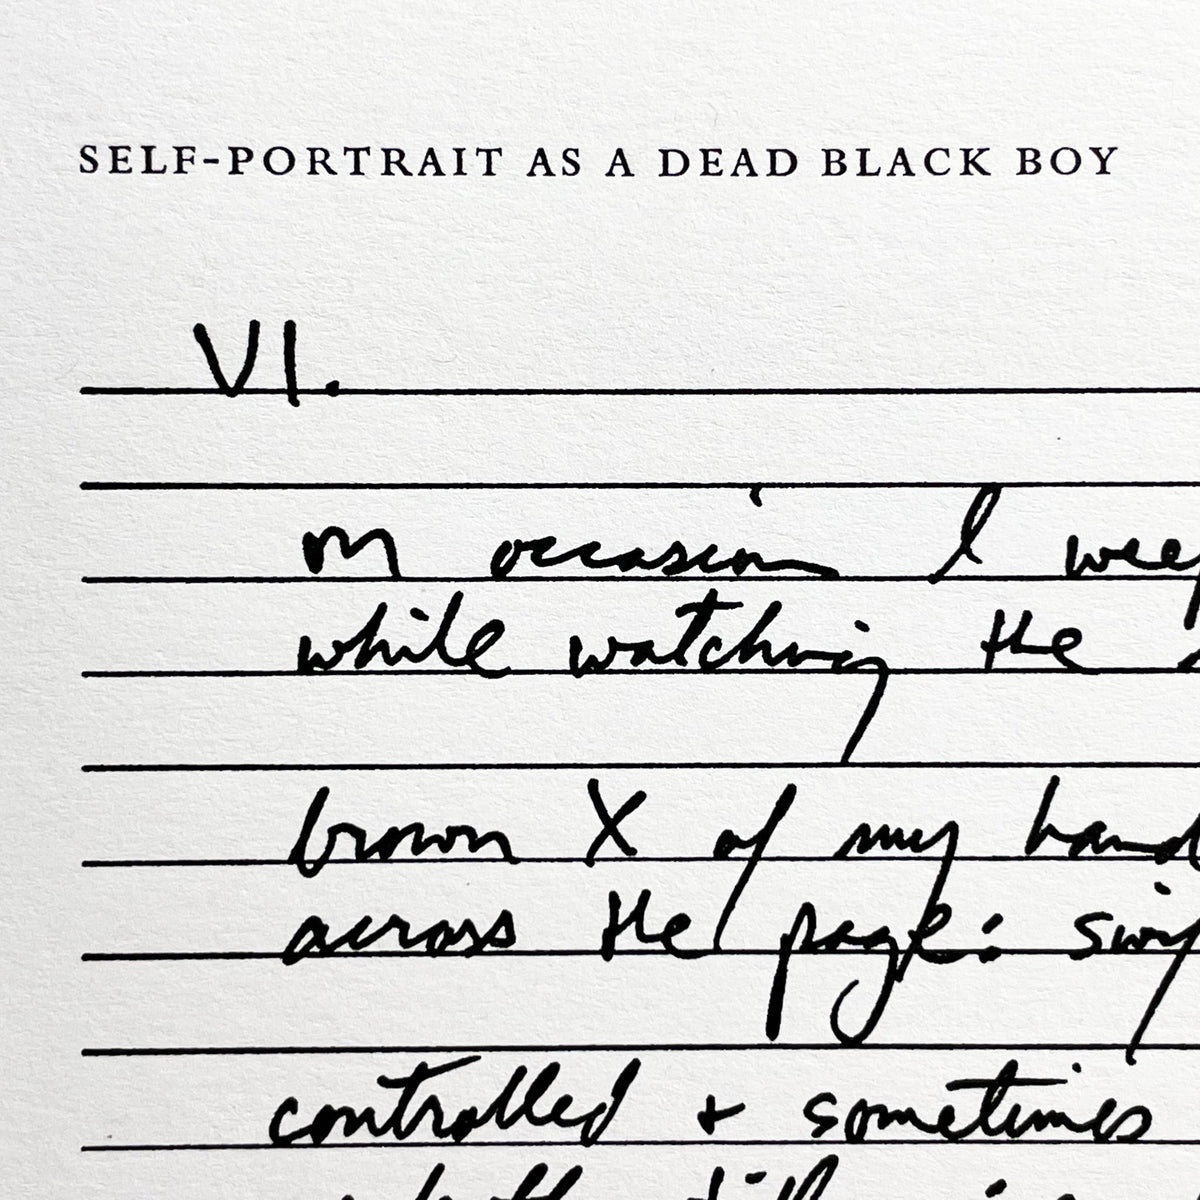 SELF-PORTRAIT AS A DEAD BLACK BOY
VI.
on occasion I weep
while watching the
brown X of my hand
across the page: swif
controlled & sometimes